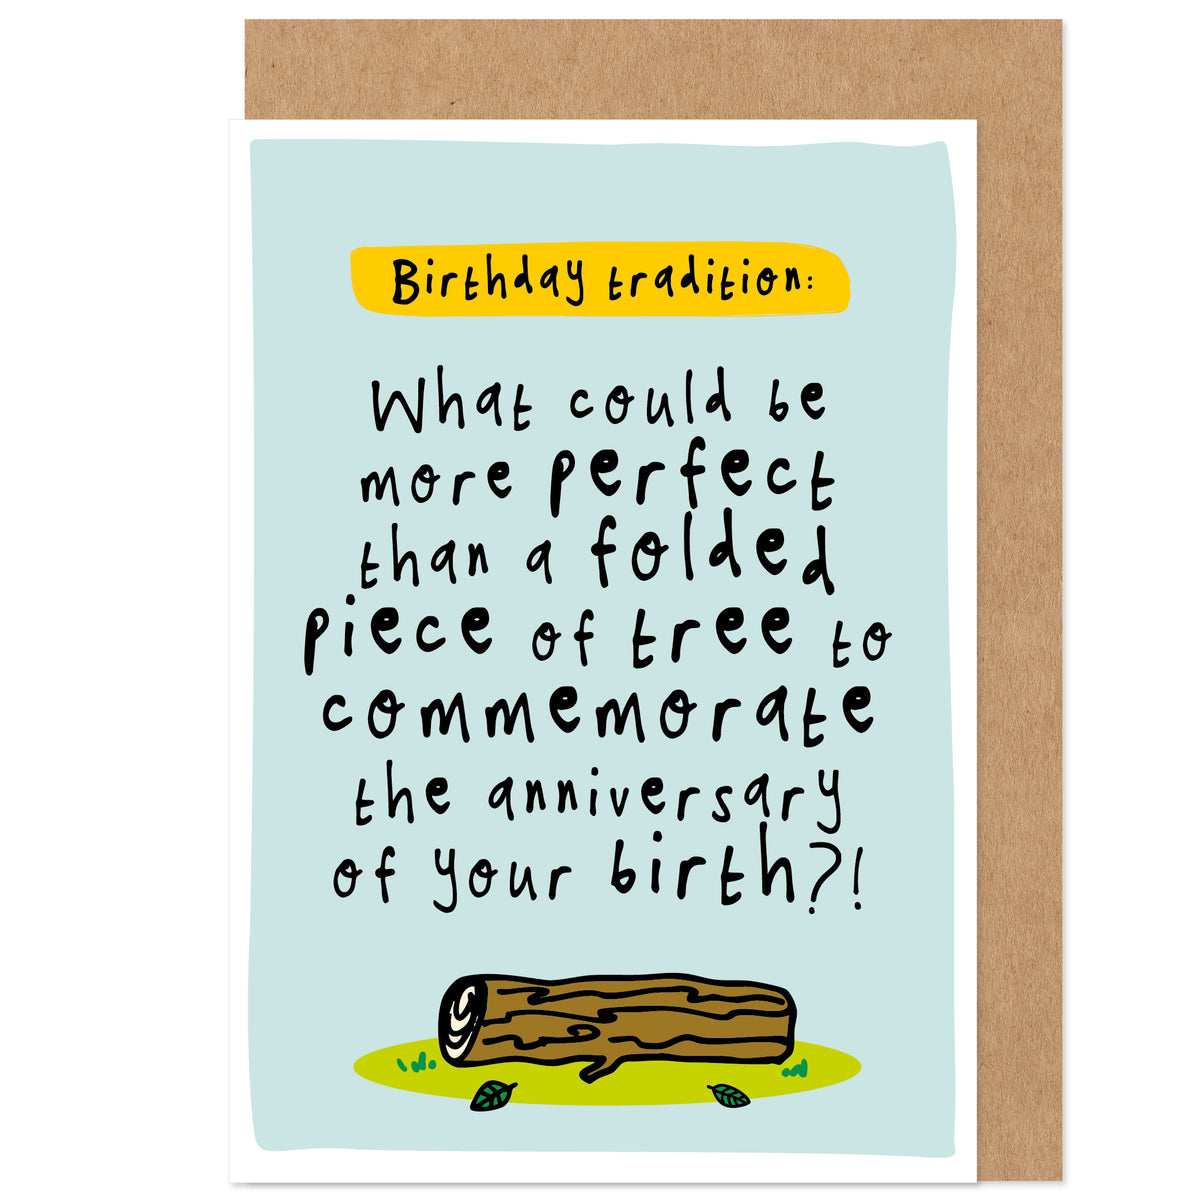 Birthday tradition:
What could be
more perfect
than a folded
piece of tree to
commemorate
the anniversary
of your birth?!